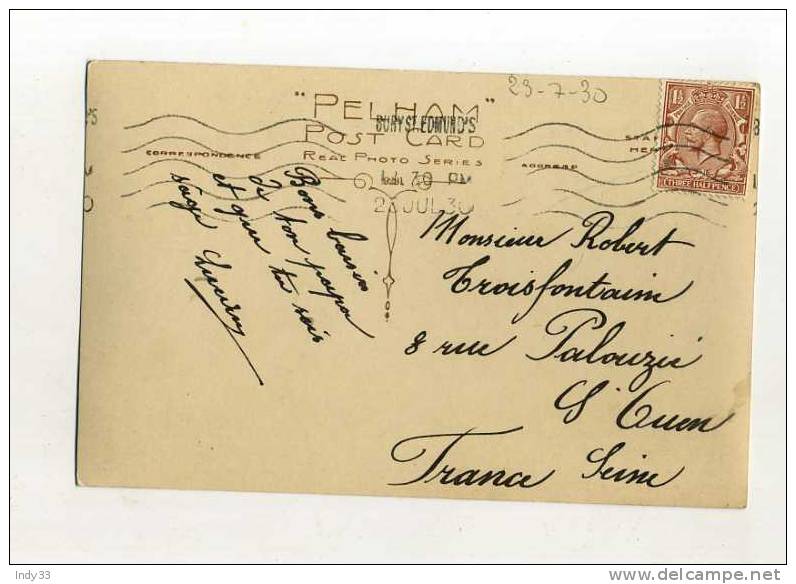 23-7-30
"PELHAM"
POST CARD
REAL PHOTO SERIES
BURY ST. EDMUND'S
30 PM
2 JUL 30
CORRESPONDENCE
ADDRESS
1½ 1½
THREE HALFPENCE
Bons baisers
de ton papa
et que tu sois
sage
Monsieur Robert
Troisfontaine
8 rue Palouzié
St Ouen
France Seine
Indy33
delcampe.net